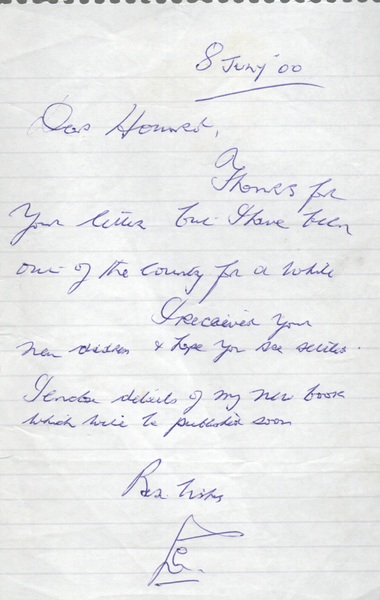 8 July '00
Dear Howard,
Thanks for
Your letter but I have been
out of the country for a while
I received Your
new address & hope You are settled.
I enclose details of my new book
which will be published soon
Best wishes